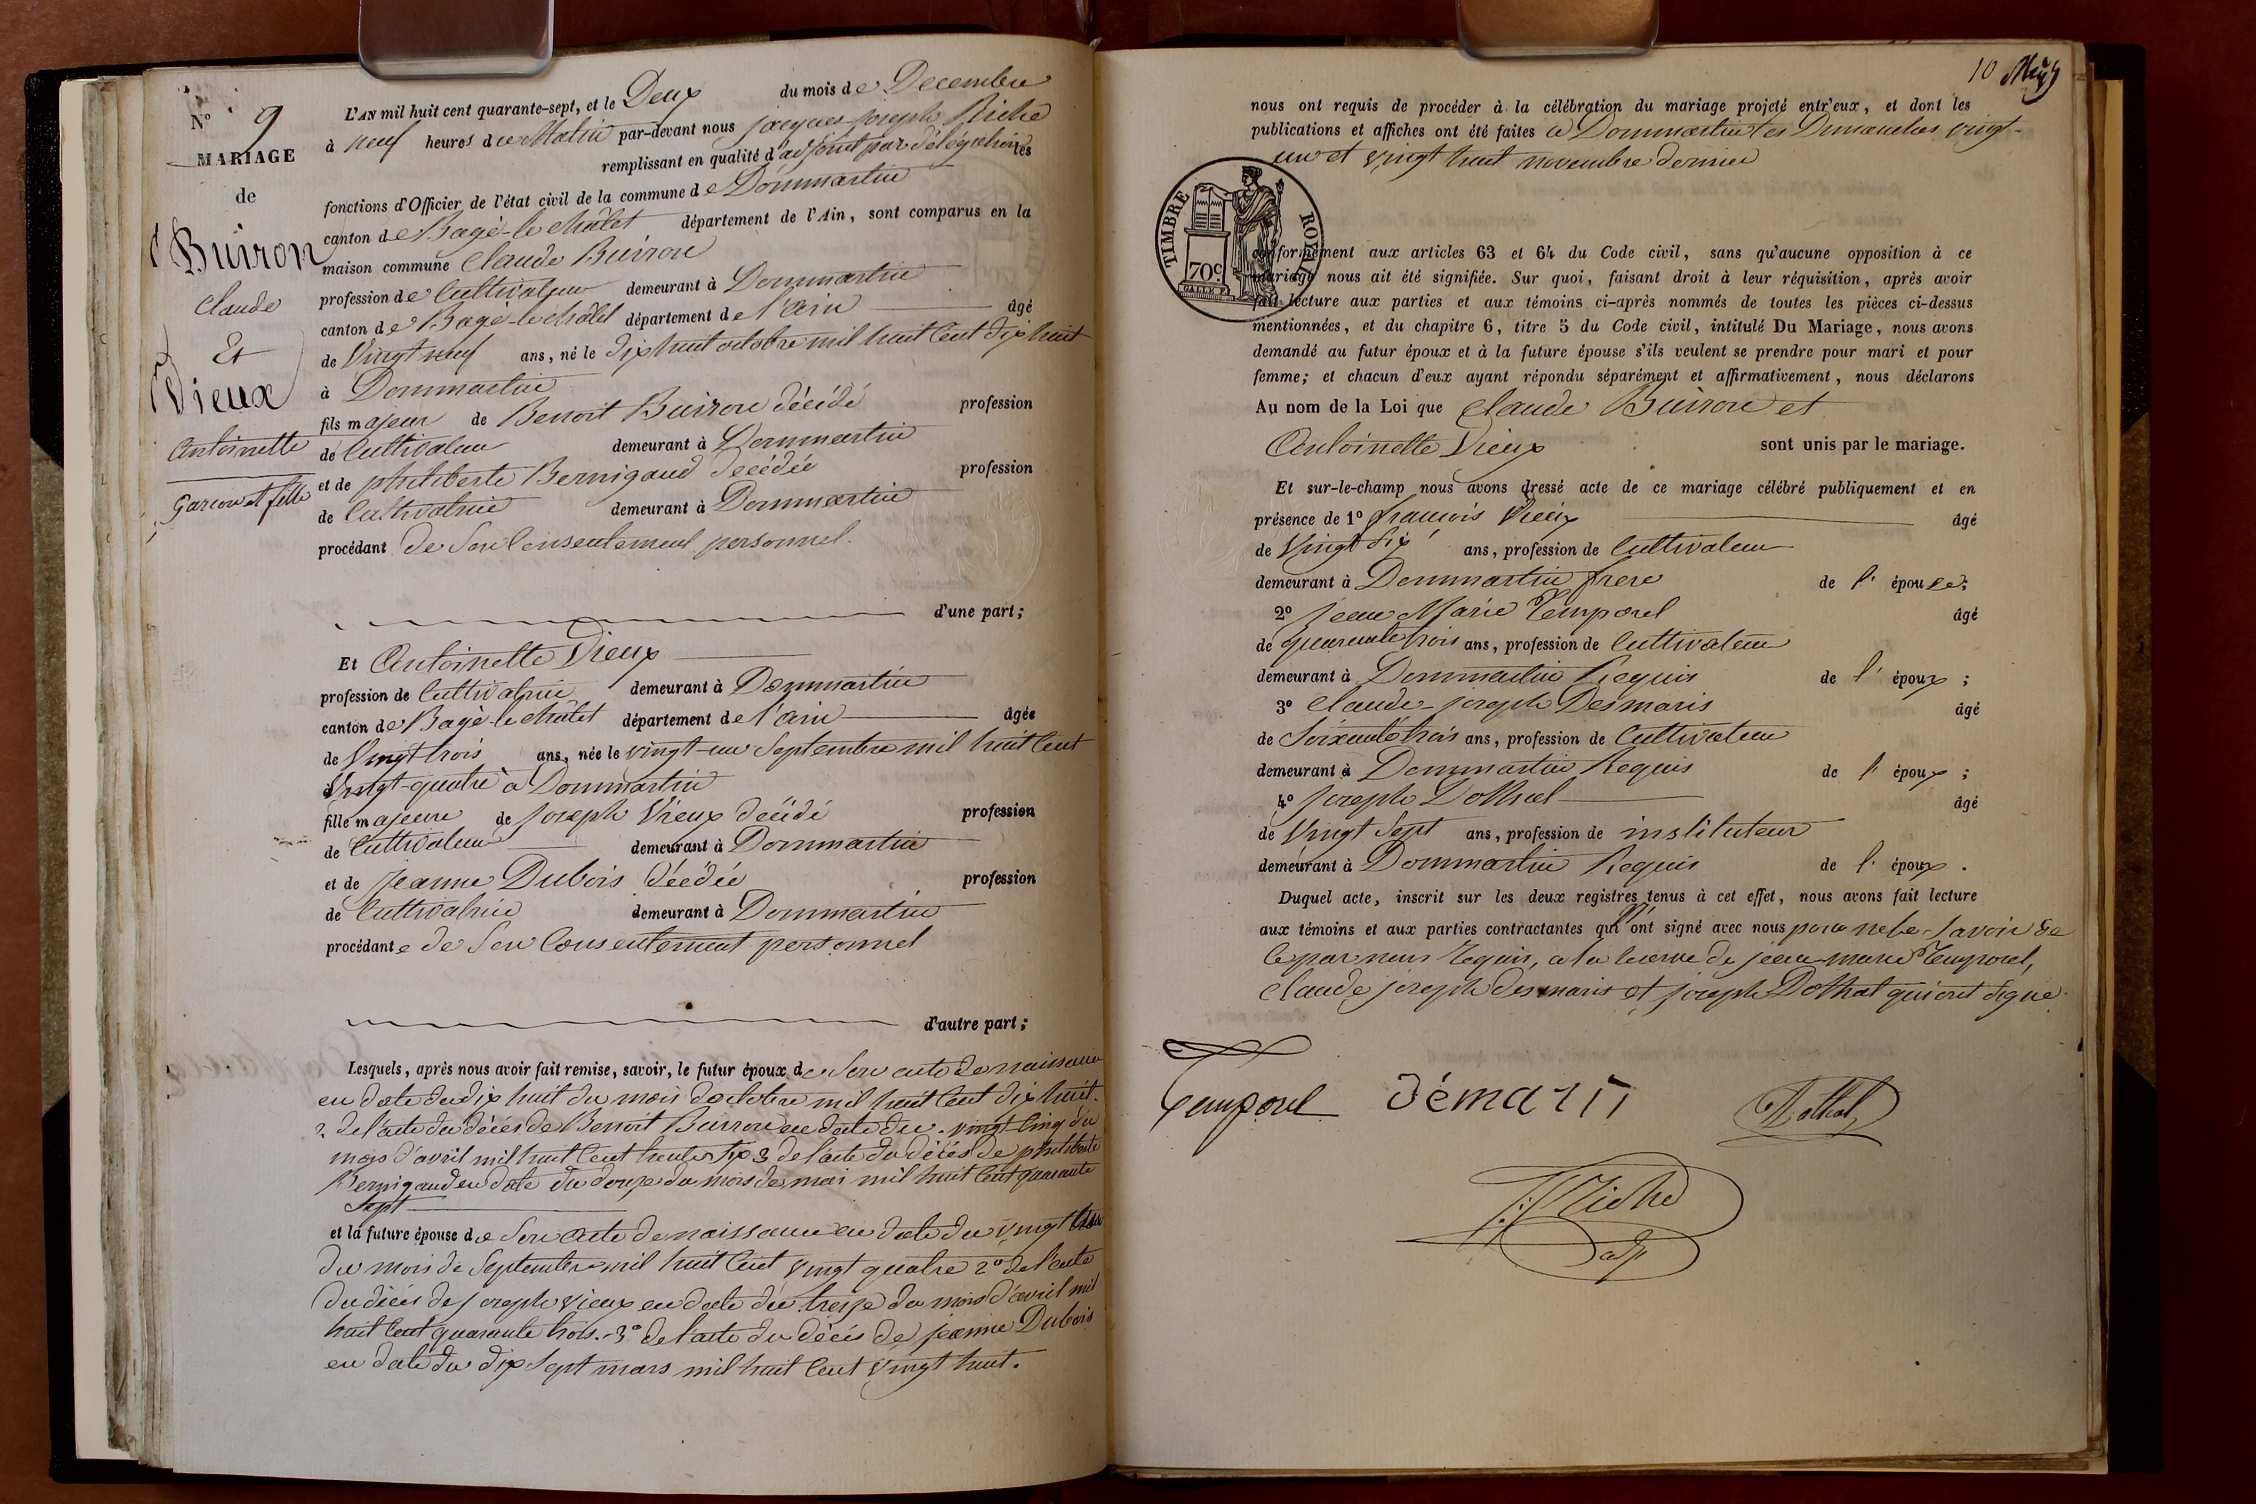 N° 9
MARIAGE
de
Buiron
Claude
Et
Vieux
Antoinette
Garcon et fille
L'AN mil huit cent quarante-sept, et le Deux du mois de Decembre
à neuf heures du Matin par-devant nous jacques joseph Riche
remplissant en qualité d'adjoint par délégation les
fonctions d'Officier de l'état civil de la commune de Dommartin
canton de Bagé-le châtel département de l'Ain, sont comparus en la
maison commune Claude Buiron
profession de Cultivateur demeurant à Dommartin
canton de Bagé-le châtel département de l'ain âgé
de Vingt neuf ans, né le dix huit octobre mil huit Cent dix huit
à Dommartin
fils majeur de Benoit Buiron décédé profession
de Cultivateur demeurant à Dommartin
et de philiberte Bernigaud décédée profession
de Cultivatrice demeurant à Dommartin
procédant de Son Consentement personnel.
d'une part;
Et Antoinette Vieux
profession de Cultivatrice demeurant à Dommartin
canton de Bagé-le châtel département de l'ain âgée
de Vingt trois ans, née le vingt-un Septembre mil huit Cent
Vingt-quatre à Dommartin
fille majeure de joseph Vieux décédé profession
de Cultivateur demeurant à Dommartin
et de jeanne Dubois décédée profession
de Cultivatrice demeurant à Dommartin
procédante de Son Consentement personnel
d'autre part;
Lesquels, après nous avoir fait remise, savoir, le futur époux de Son acte de naissance
en date du dix huit du mois d'octobre mil huit Cent dix huit.
2. de l'acte du décès de Benoit Buiron en date du vingt Cinq du
mois d'avril mil huit Cent trente six 3 de l'acte du décès de philiberte
Bernigaud en date du douze du mois de mai mil huit Cent quarante
Sept
et la future épouse de Son acte de naissance en date du vingt
du mois de Septembre mil huit Cent vingt quatre 2° de l'acte
du décès de joseph vieux en date du treize du mois d'avril mil
huit Cent quarante trois. 3° de l'acte du décès de jeanne Dubois
en date du dix Sept mars mil huit Cent Vingt huit.
10
nous ont requis de procéder à la célébration du mariage projeté entr'eux, et dont les
publications et affiches ont été faites à Dommartin les Dimanches vingt-
un et vingt huit novembre dernier
TIMBRE ROYAL
70c
conformément aux articles 63 et 64 du Code civil, sans qu'aucune opposition à ce
mariage nous ait été signifiée. Sur quoi, faisant droit à leur réquisition, après avoir
fait lecture aux parties et aux témoins ci-après nommés de toutes les pièces ci-dessus
mentionnées, et du chapitre 6, titre 5 du Code civil, intitulé Du Mariage, nous avons
demandé au futur époux et à la future épouse s'ils veulent se prendre pour mari et pour
femme; et chacun d'eux ayant répondu séparément et affirmativement, nous déclarons
Au nom de la Loi que Claude Buiron et
Antoinette Vieux sont unis par le mariage.
Et sur-le-champ nous avons dressé acte de ce mariage célébré publiquement et en
présence de 1° francois Vieux âgé
de Vingt dix ans, profession de Cultivateur
demeurant à Dommartin frere de l' épouse;
2° jean Marie Temporel âgé
de quarante trois ans, profession de Cultivateur
demeurant à Dommartin Requis de l' époux;
3° Claude-joseph Desmaris âgé
de Soixante trois ans, profession de Cultivateur
demeurant à Dommartin Requis de l' époux;
4° joseph Dothal âgé
de Vingt Sept ans, profession de instituteur
demeurant à Dommartin Requis de l' époux.
Duquel acte, inscrit sur les deux registres tenus à cet effet, nous avons fait lecture
aux témoins et aux parties contractantes qui n'ont signé avec nous pour ne le Savoir de
Ce par nous Requis, a la Reserve de jean-marie Temporel,
Claude joseph desmaris et joseph Dothal qui ont Signé.
Temporel démaris Dothal
Riche
adj